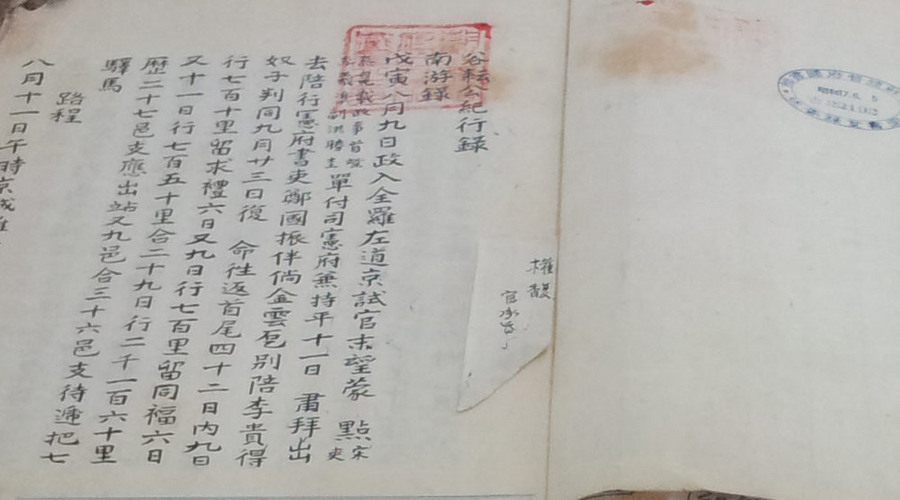 谷耘公紀行録
南游録
戊寅八月九日政入全羅左道京試官末望蒙　點
單付司憲府兼持平十一日　肅拜出
去陪行憲府書吏鄭國振伴倘金雲 别陪李貴得
奴子判同九月廿三日復　命往返首尾四十二日內九日
行七百十里留求禮六日又九日行七百里留同福六日
又十一日行七百五十里合二十九日行二千一百六十里
歷二十七邑支應出站又九邑合三十六邑支待遞把七
驛馬
路程
八月十一日午時京城
權馥